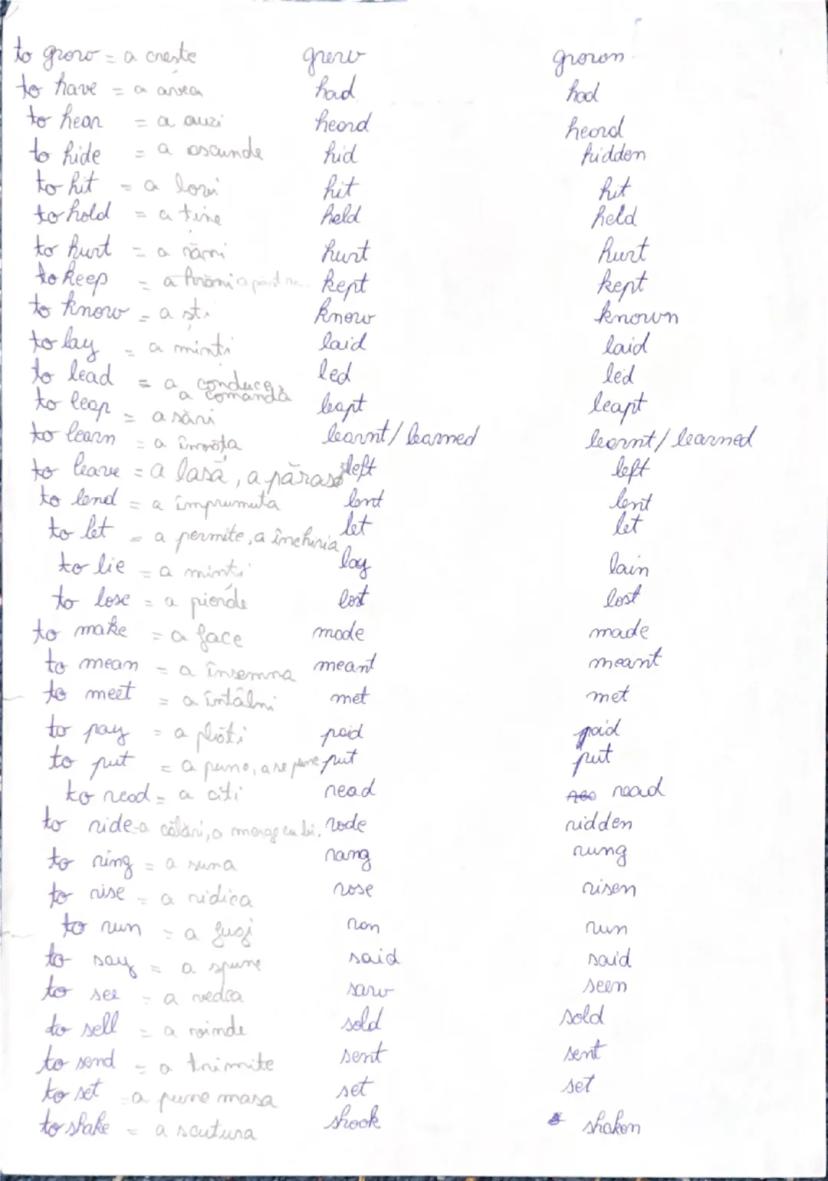 to grow = a crește grew grown
to have = a avea had had
to hear = a auzi heard heard
to hide = a ascunde hid hidden
to hit = a lovi hit hit
to hold = a ține held held
to hurt = a răni hurt hurt
to keep = a hrăni kept kept
to know = a ști know known
to lay = a minți laid laid
to lead = a conduce, led led
a comanda
to leap = a sări leapt leapt
to learn = a învăța learnt/learned learnt/learned
to leave = a lasă, a părăsi left left
to lend = a împrumuta lent lent
to let = a permite, a închiria let let
to lie = a minți lay lain
to lose = a pierde lost lost
to make = a face made made
to mean = a însemna meant meant
to meet = a întâlni met met
to pay = a plăti paid paid
to put = a pune, a se pune put put
to read = a citi read read
to ride = a călări, a merge cu bi. rode ridden
to ring = a suna rang rung
to rise = a ridica rose risen
to run = a fugi ran run
to say = a spune said said
to see = a vedea saw seen
to sell = a vinde sold sold
to send = a trimite sent sent
to set = a pune masa set set
to shake = a scutura shook shaken